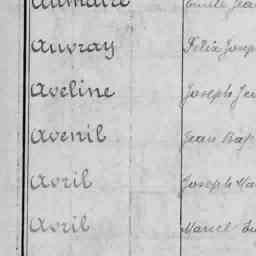 Aumaire
Auvray Félix Josep
Aveline Joseph
Avenil Jean Bap
Avril Joseph Ma
Avril Marcel